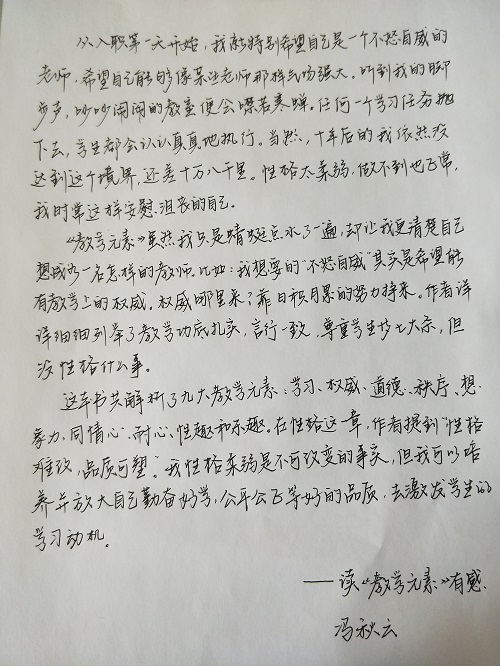 从入职第一天开始，我就特别希望自己是一个不怒自威的
老师，希望自己能够像某些老师那样气场强大。听到我的脚
步声，吵吵闹闹的教室便会噤若寒蝉。任何一个学习任务抛
下去，学生都会认认真真地执行。当然，十年后的我依然没
达到这个境界，还差十万八千里。性格太柔弱，做不到也正常，
我时常这样安慰沮丧的自己。
《教学元素》虽然我只是蜻蜓点水了一遍，却让我更清楚自己
想成为一名怎样的教师。比如：我想要的“不怒自威”其实是希望能
有教学上的权威。权威哪里来？靠日积月累的努力得来。作者详
详细细列举了教学功底扎实，言行一致，尊重学生等七大条，但
没性格什么事。
这本书共解析了九大教学元素：学习、权威、道德、秩序、想
象力、同情心、耐心、性格和乐趣。在性格这一章，作者提到“性格
难改，品质可塑”。我性格柔弱是不可改变的事实，但我可以培
养并放大自己勤奋好学，公平公正等好的品质，去激发学生的
学习动机。
——读《教学元素》有感
冯秋云